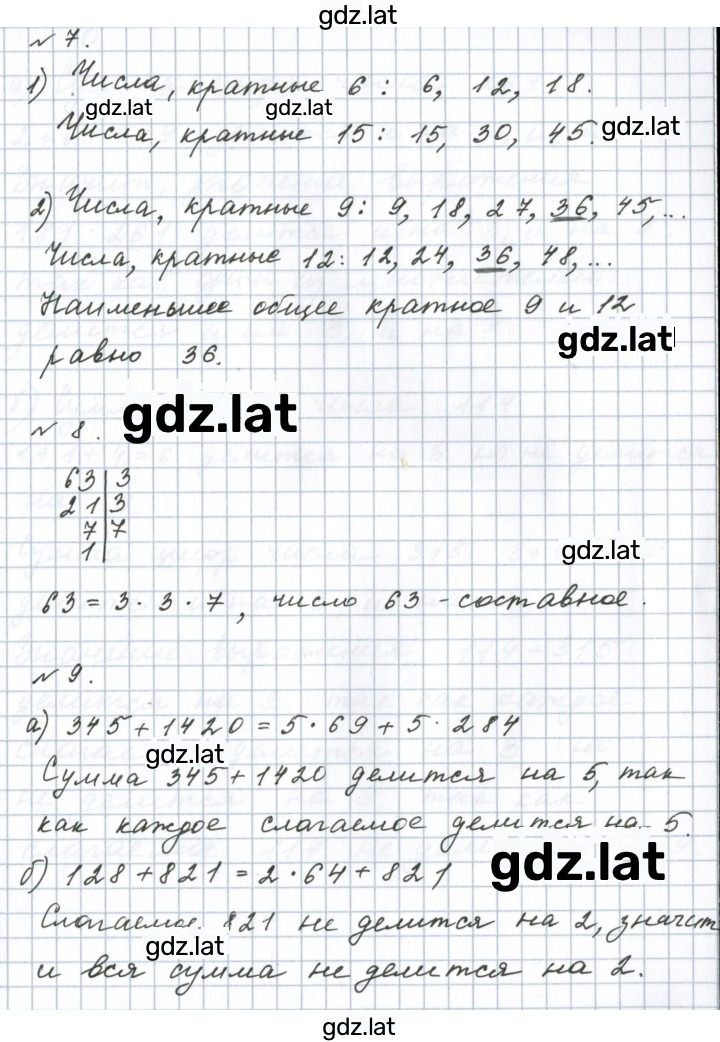 gdz.lat
№ 7.
1) Числа, кратные 6 : 6, 12, 18.
gdz.lat gdz.lat
Числа, кратные 15: 15, 30, 45.
gdz.lat
2) Числа, кратные 9: 9, 18, 27, 36, 45,...
Числа, кратные 12: 12, 24, 36, 48,...
Наименьшее общее кратное 9 и 12
gdz.lat
равно 36.
gdz.lat
№ 8.
63|3
21|3
7|7
1|
gdz.lat
63 = 3 · 3 · 7, число 63 - составное.
№ 9.
а) 345 + 1420 = 5 · 69 + 5 · 284
gdz.lat
Сумма 345 + 1420 делится на 5, так
как каждое слагаемое делится на 5.
gdz.lat
б) 128 + 821 = 2 · 64 + 821
Слагаемое 821 не делится на 2, значит
gdz.lat
и вся сумма не делится на 2.
gdz.lat